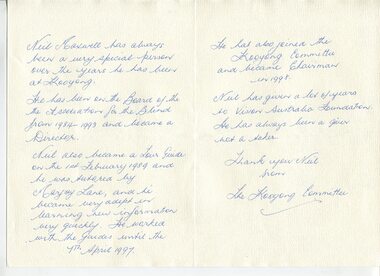 Neil Maxwell has always
been a very special person
over the years he has been
at Kooyong.
He has been on the Board of the
the Association for the Blind
from 1984-1993 and became a
Director.
Neil also became a Tour Guide
on the 1st February 1989 and
he was tutored by
Margory Lane, and he
became very adept in
learning new information
very quickly. He worked
with the Guides until the
7th April 1997.
He has also joined the
Kooyong Committee
and became Chairman
in 1998.
Neil has given a lot of years
to Vision Australia Foundation.
He has always been a giver
not a taker.
Thank you Neil
from
The Kooyong Committee